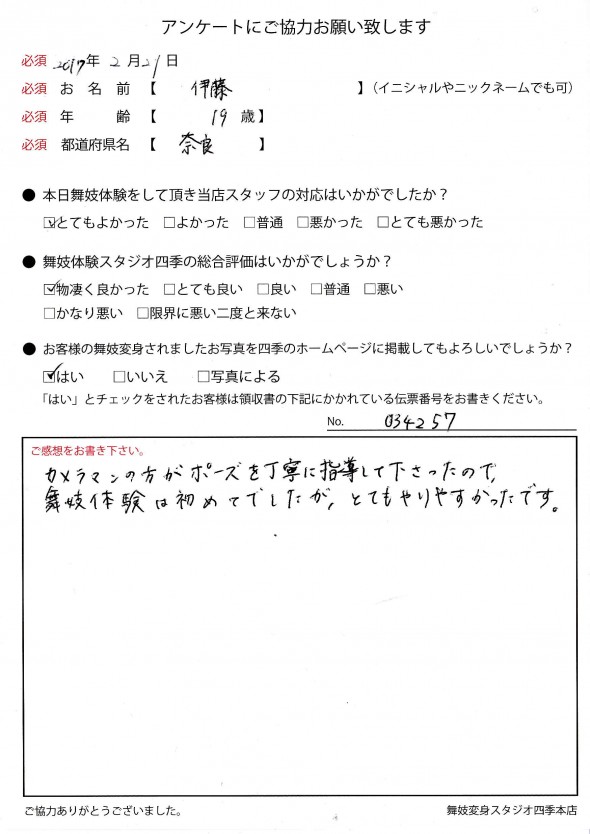 アンケートにご協力お願い致します
必須 2017年 2月21日
必須 お名前【 伊藤 】（イニシャルやニックネームでも可）
必須 年齢【 19 歳】
必須 都道府県名【 奈良 】
● 本日舞妓体験をして頂き当店スタッフの対応はいかがでしたか？
☑とてもよかった □よかった □普通 □悪かった □とても悪かった
● 舞妓体験スタジオ四季の総合評価はいかがでしょうか？
☑物凄く良かった □とても良い □良い □普通 □悪い
□かなり悪い □限界に悪い二度と来ない
● お客様の舞妓変身されましたお写真を四季のホームページに掲載してもよろしいでしょうか？
☑はい □いいえ □写真による
「はい」とチェックをされたお客様は領収書の下記にかかれている伝票番号をお書きください。
No. 034257
ご感想をお書き下さい。
カメラマンの方がポーズを丁寧に指導して下さったので、
舞妓体験は初めてでしたが、とてもやりやすかったです。
ご協力ありがとうございました。 舞妓変身スタジオ四季本店